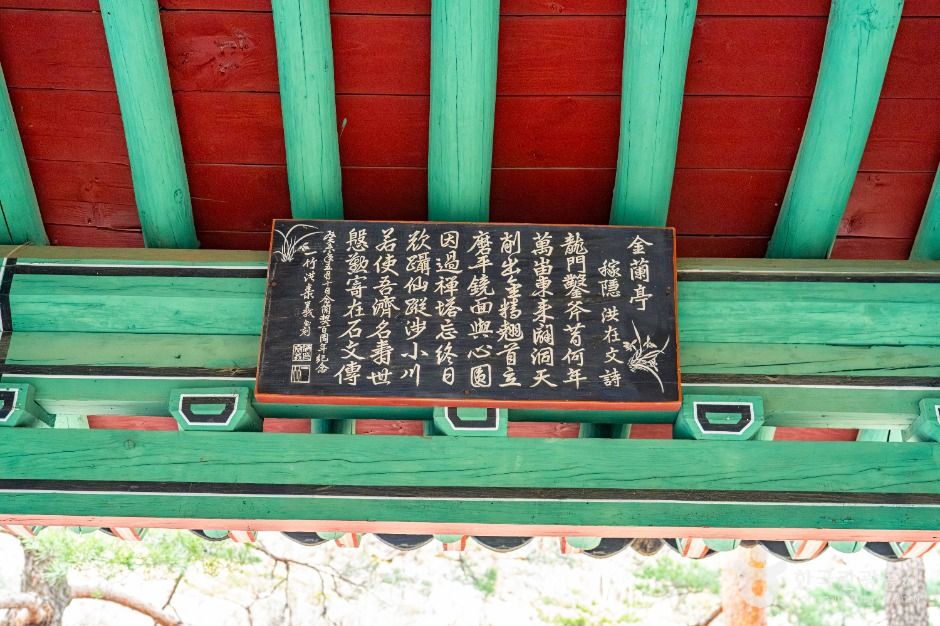 金蘭亭
稼隱 洪在文 詩
龍門鑿斧昔何年
萬東来闢洞天
削出精翹首立
磨平鏡面與心圓
因過禪塔忘終日
欲躡仙蹤涉小川
若使吾濟名壽世
慇懃寄在石文傳
癸年五月十日金蘭契百周年紀念
竹 洪泰義